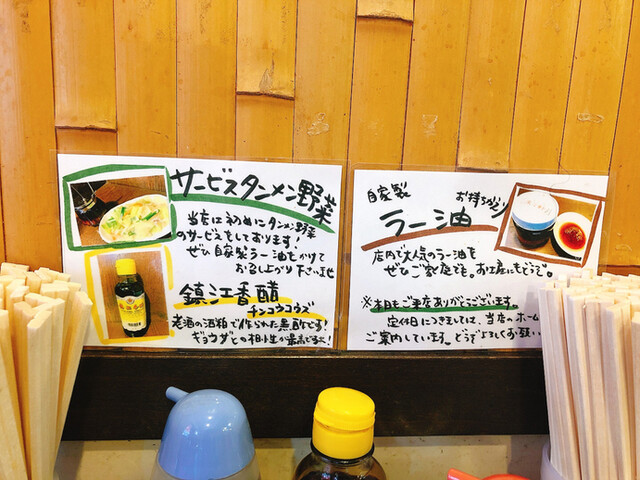 サービスタンメン野菜
当店は初めにタンメン野菜
のサービスをしております!
ぜひ自家製ラー油をかけて
お召し上がり下さいませ
鎮江香醋
チンコウコウズ
老酒の酒粕で作られた黒酢です!
ギョウザとの相性が最高ですヨ!
自家製
お持ち帰り
ラー油
店内で大人気のラー油を
ぜひご家庭でも。お土産にもどうぞ。
※本日もご来店ありがとうございます。
定休日につきましては、当店のホーム
ご案内しています。どうぞよろしくお願い